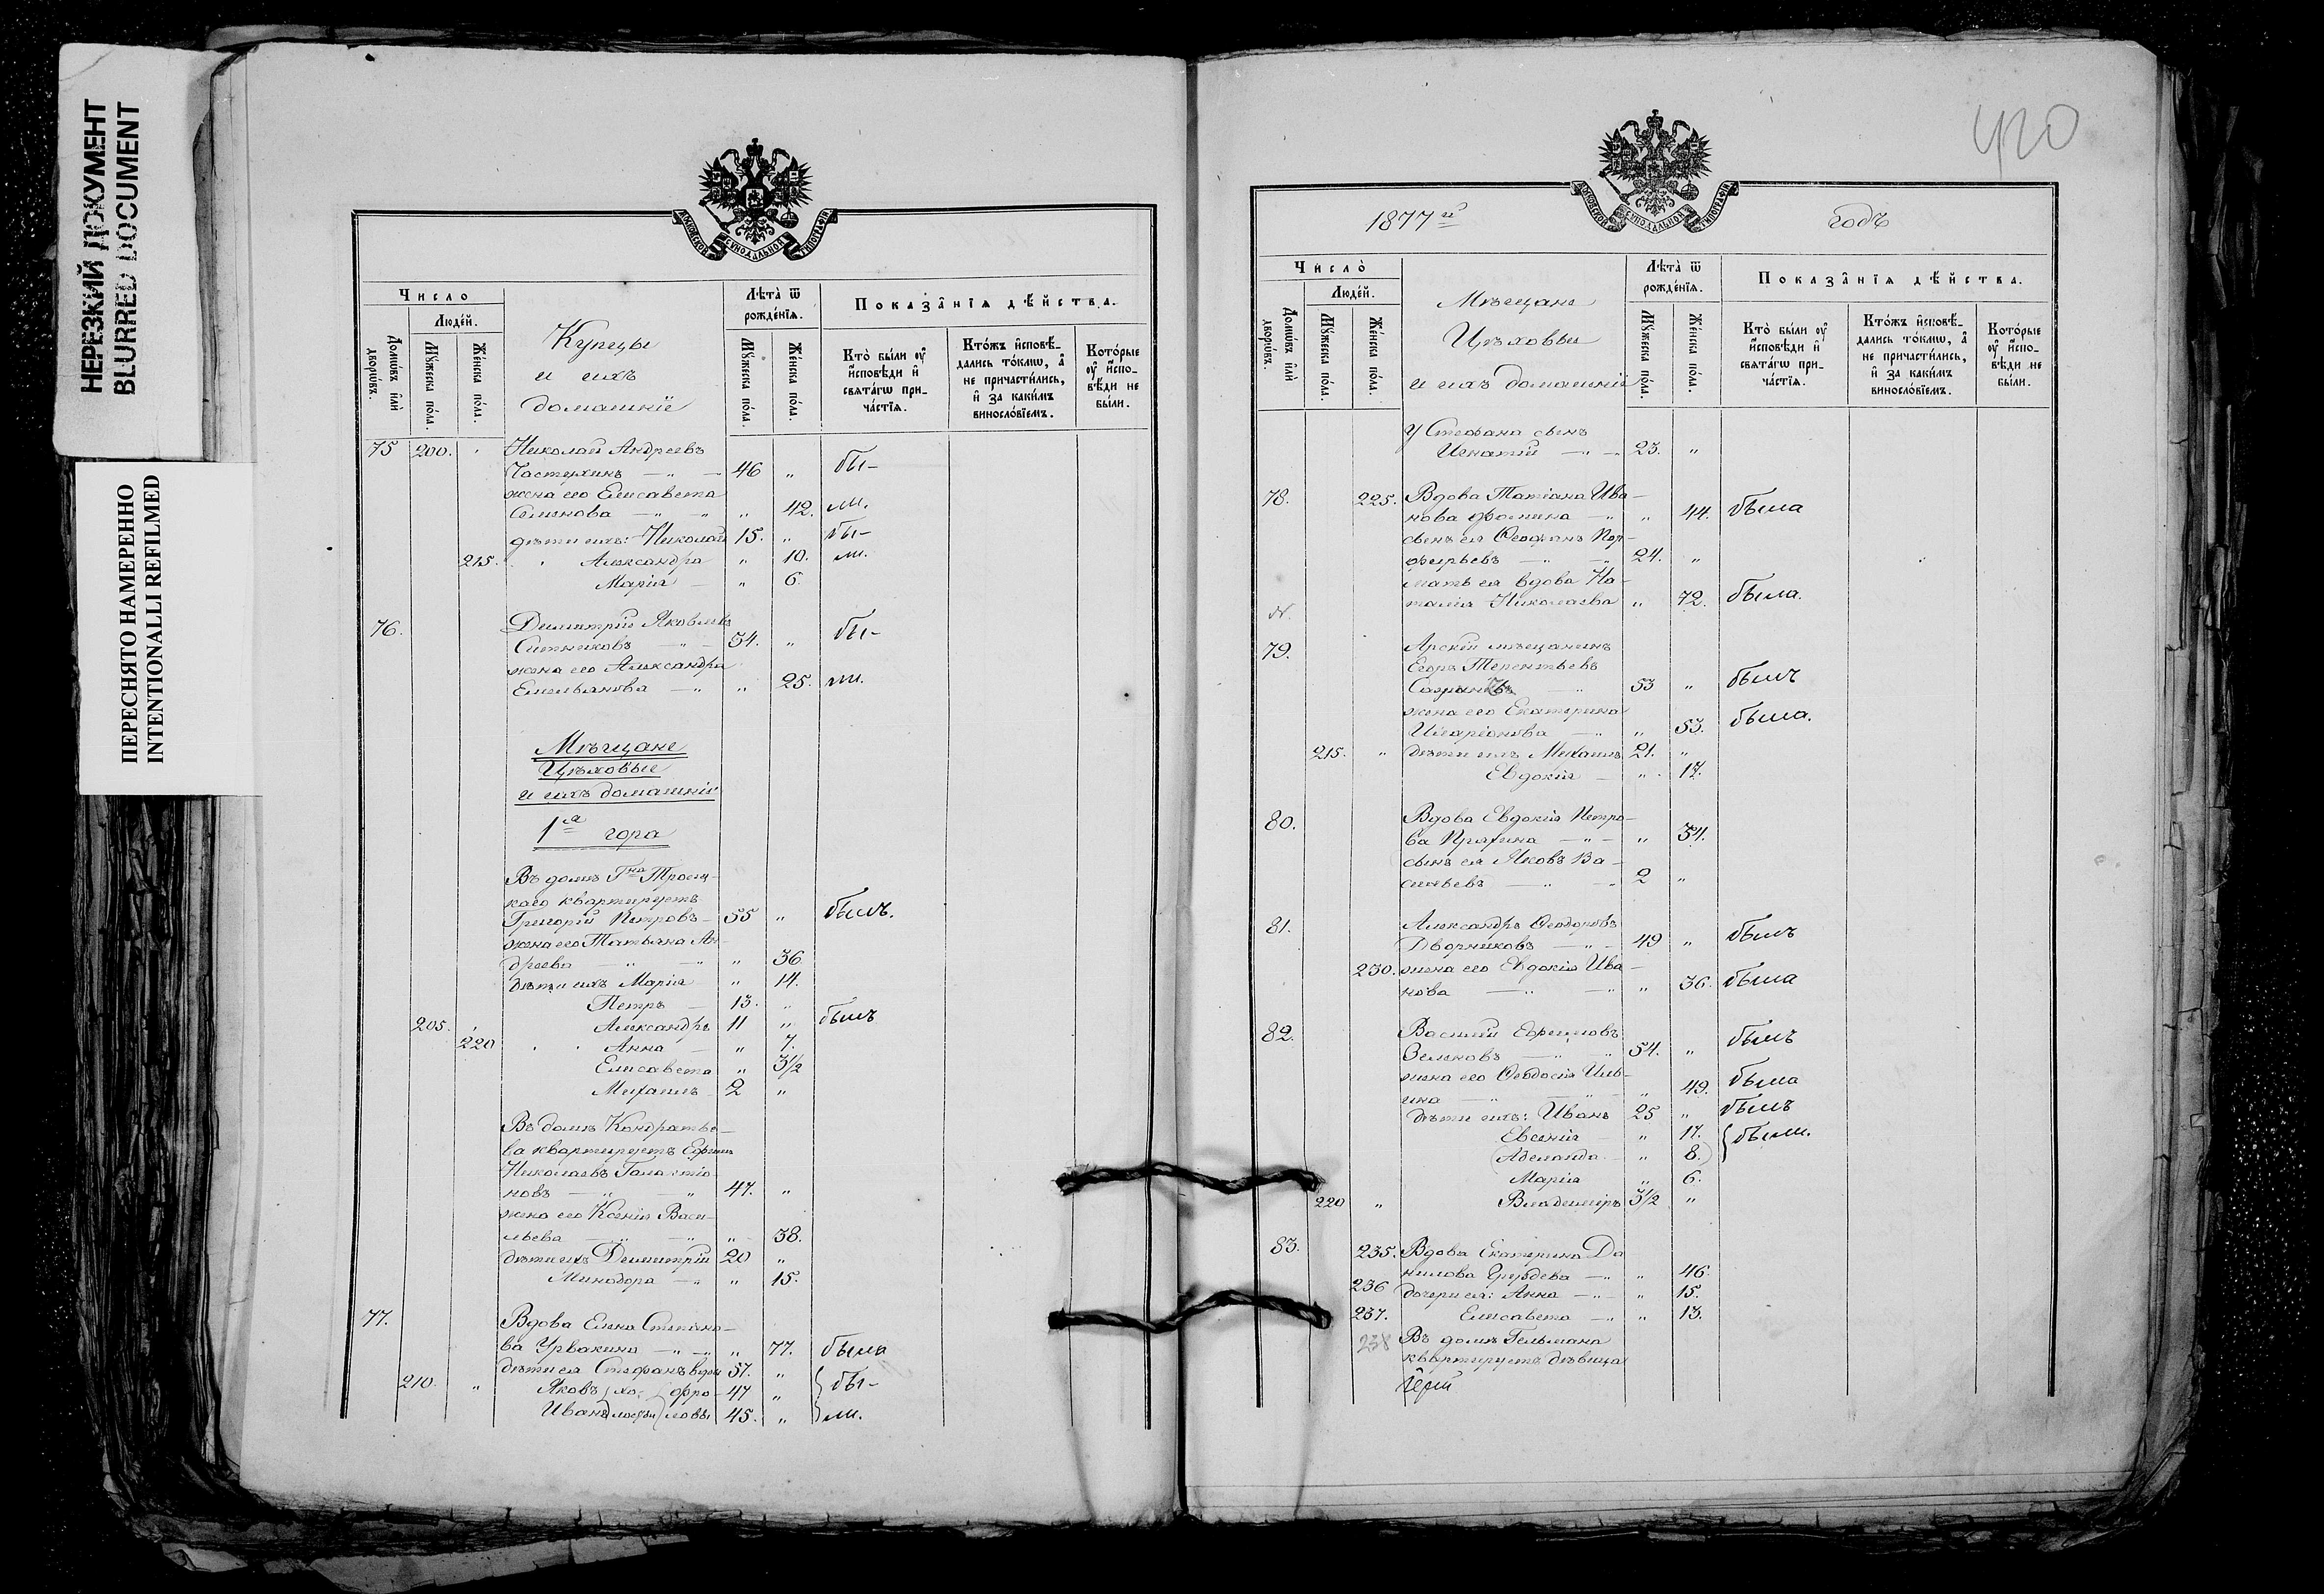 НЕРЕЗКИЙ ДОКУМЕНТ
BLURRED DOCUMENT
ПЕРЕСНЯТО НАМЕРЕННО
INTENTIONALLI REFILMED
МОСКОВСКОЙ СѴНОДАЛЬНОЙ ТИПОГРАФІИ
Число
Людей.
Домовъ или дворовъ.
Мужеска пола.
Женска пола.
Купецы
и ихъ
домашніе
Лѣта ѿ рожденія.
Мужеска пола.
Женска пола.
Показанія дѣйства.
Кто были у исповѣди и святагѡ причастія.
Ктожъ исповѣдались токмѡ, а не причастились, и за какимъ винословіемъ.
Которые у исповѣди не были.
75 200. " Николай Андреевъ
46 " бы-
жена его Елисавета
Семенова — " — " " 42. ли.
дѣти ихъ: Николай 15. " бы-
215. " Александра " 10. ли.
Марія — " 6.
76. Димитрій Яковлевъ
Ситниковъ — " — 34. " бы-
жена его Александра
Емельянова — " " 25. ли.
Мѣщане
Цѣховые
и ихъ домашніе
1я гора
Въ домѣ Гна Троиц-
каго квартируетъ
Григорій Петровъ — 55 " былъ.
жена его Татьяна Ан-
дреева — " — " " 36
дѣти ихъ Марія " 14.
Петръ — 13. "
205. " Александръ 11 " былъ
220 " " Анна — " 7.
Елисавета " 3½
Михаилъ 2 "
Въ домѣ Кондратье-
ва квартируетъ Ефимъ
Николаевъ Галактіо-
новъ — " — " 47. "
жена его Ксенія Васи-
льева — " — " " 38.
дѣти ихъ Димитрій 20 "
Минодора — " " 15.
77. Вдова Елена Степано-
ва Урвакина — " — " " 77. была
дѣти ея Стефанъ вдов 57. "
210. " Яковъ 47 " бы-
Иванъ 45. " ли.
420
1877й годъ
МОСКОВСКОЙ СѴНОДАЛЬНОЙ ТИПОГРАФІИ
Число
Людей.
Домовъ или дворовъ.
Мужеска пола.
Женска пола.
Мѣщане
Цѣховые
и ихъ домашніе
Лѣта ѿ рожденія.
Мужеска пола.
Женска пола.
Показанія дѣйства.
Кто были у исповѣди и святагѡ причастія.
Ктожъ исповѣдались токмѡ, а не причастились, и за какимъ винословіемъ.
Которые у исповѣди не были.
У Стефана сынъ
Игнатій — " — 23. "
78. 225. Вдова Татіана Ива-
нова Фомина — " " 44. была
сынъ ея Стефанъ Пор-
фирьевъ — " — " 24. "
мать ея вдова На-
талія Николаева " 72. была.
79. Арскій мѣщанинъ
Егоръ Терентьевъ
53 " былъ
жена его Екатерина
Иларіонова — " " 53. была.
215. " дѣти ихъ Михаилъ 21. "
Евдокія — " 17.
80. Вдова Евдокія Петро-
ва — " — " 34.
сынъ ея Яковъ Ва-
сильевъ — " — " 2 "
81. Александръ Ѳеодоровъ
Дворниковъ — " — 49 " былъ
230. жена его Евдокія Ива-
нова — " — " " 36. была
82. Василій Ефремовъ
54. " былъ
жена его Ѳеодосія Иль-
ина — " — " " 49. была
дѣти ихъ: Иванъ 25 " былъ
Евгенія — " 17. были.
(Аделаида — " 8.)
Марія " 6.
220 " Владиміръ 3½ "
83. 235. Вдова Екатерина Да
нилова — " " 46.
236 дочери ея: Анна — " " 15.
237. Елисавета — " " 13.
238 Въ домѣ Гельмана
квартируетъ дѣвица